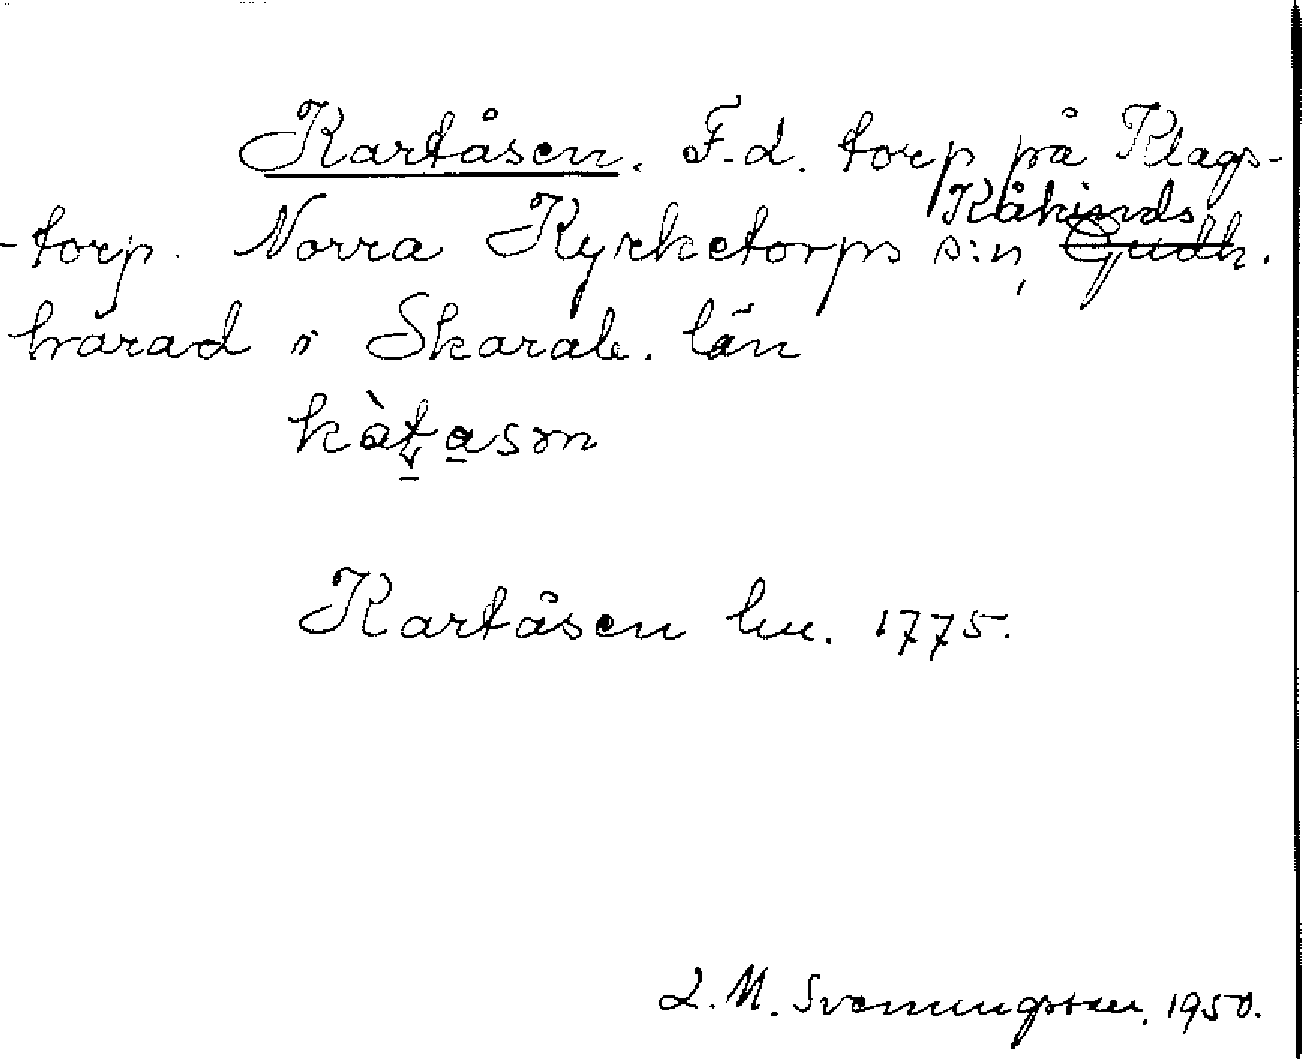 Kartåsen. F.d. torp på Klags-
-torp. Norra Kyrketorps s:n, Kåkinds
härad i Skarab. län
kàt̠a̠sən
Kartåsen hu. 1775.
L. M. Svenungsson. 1950.